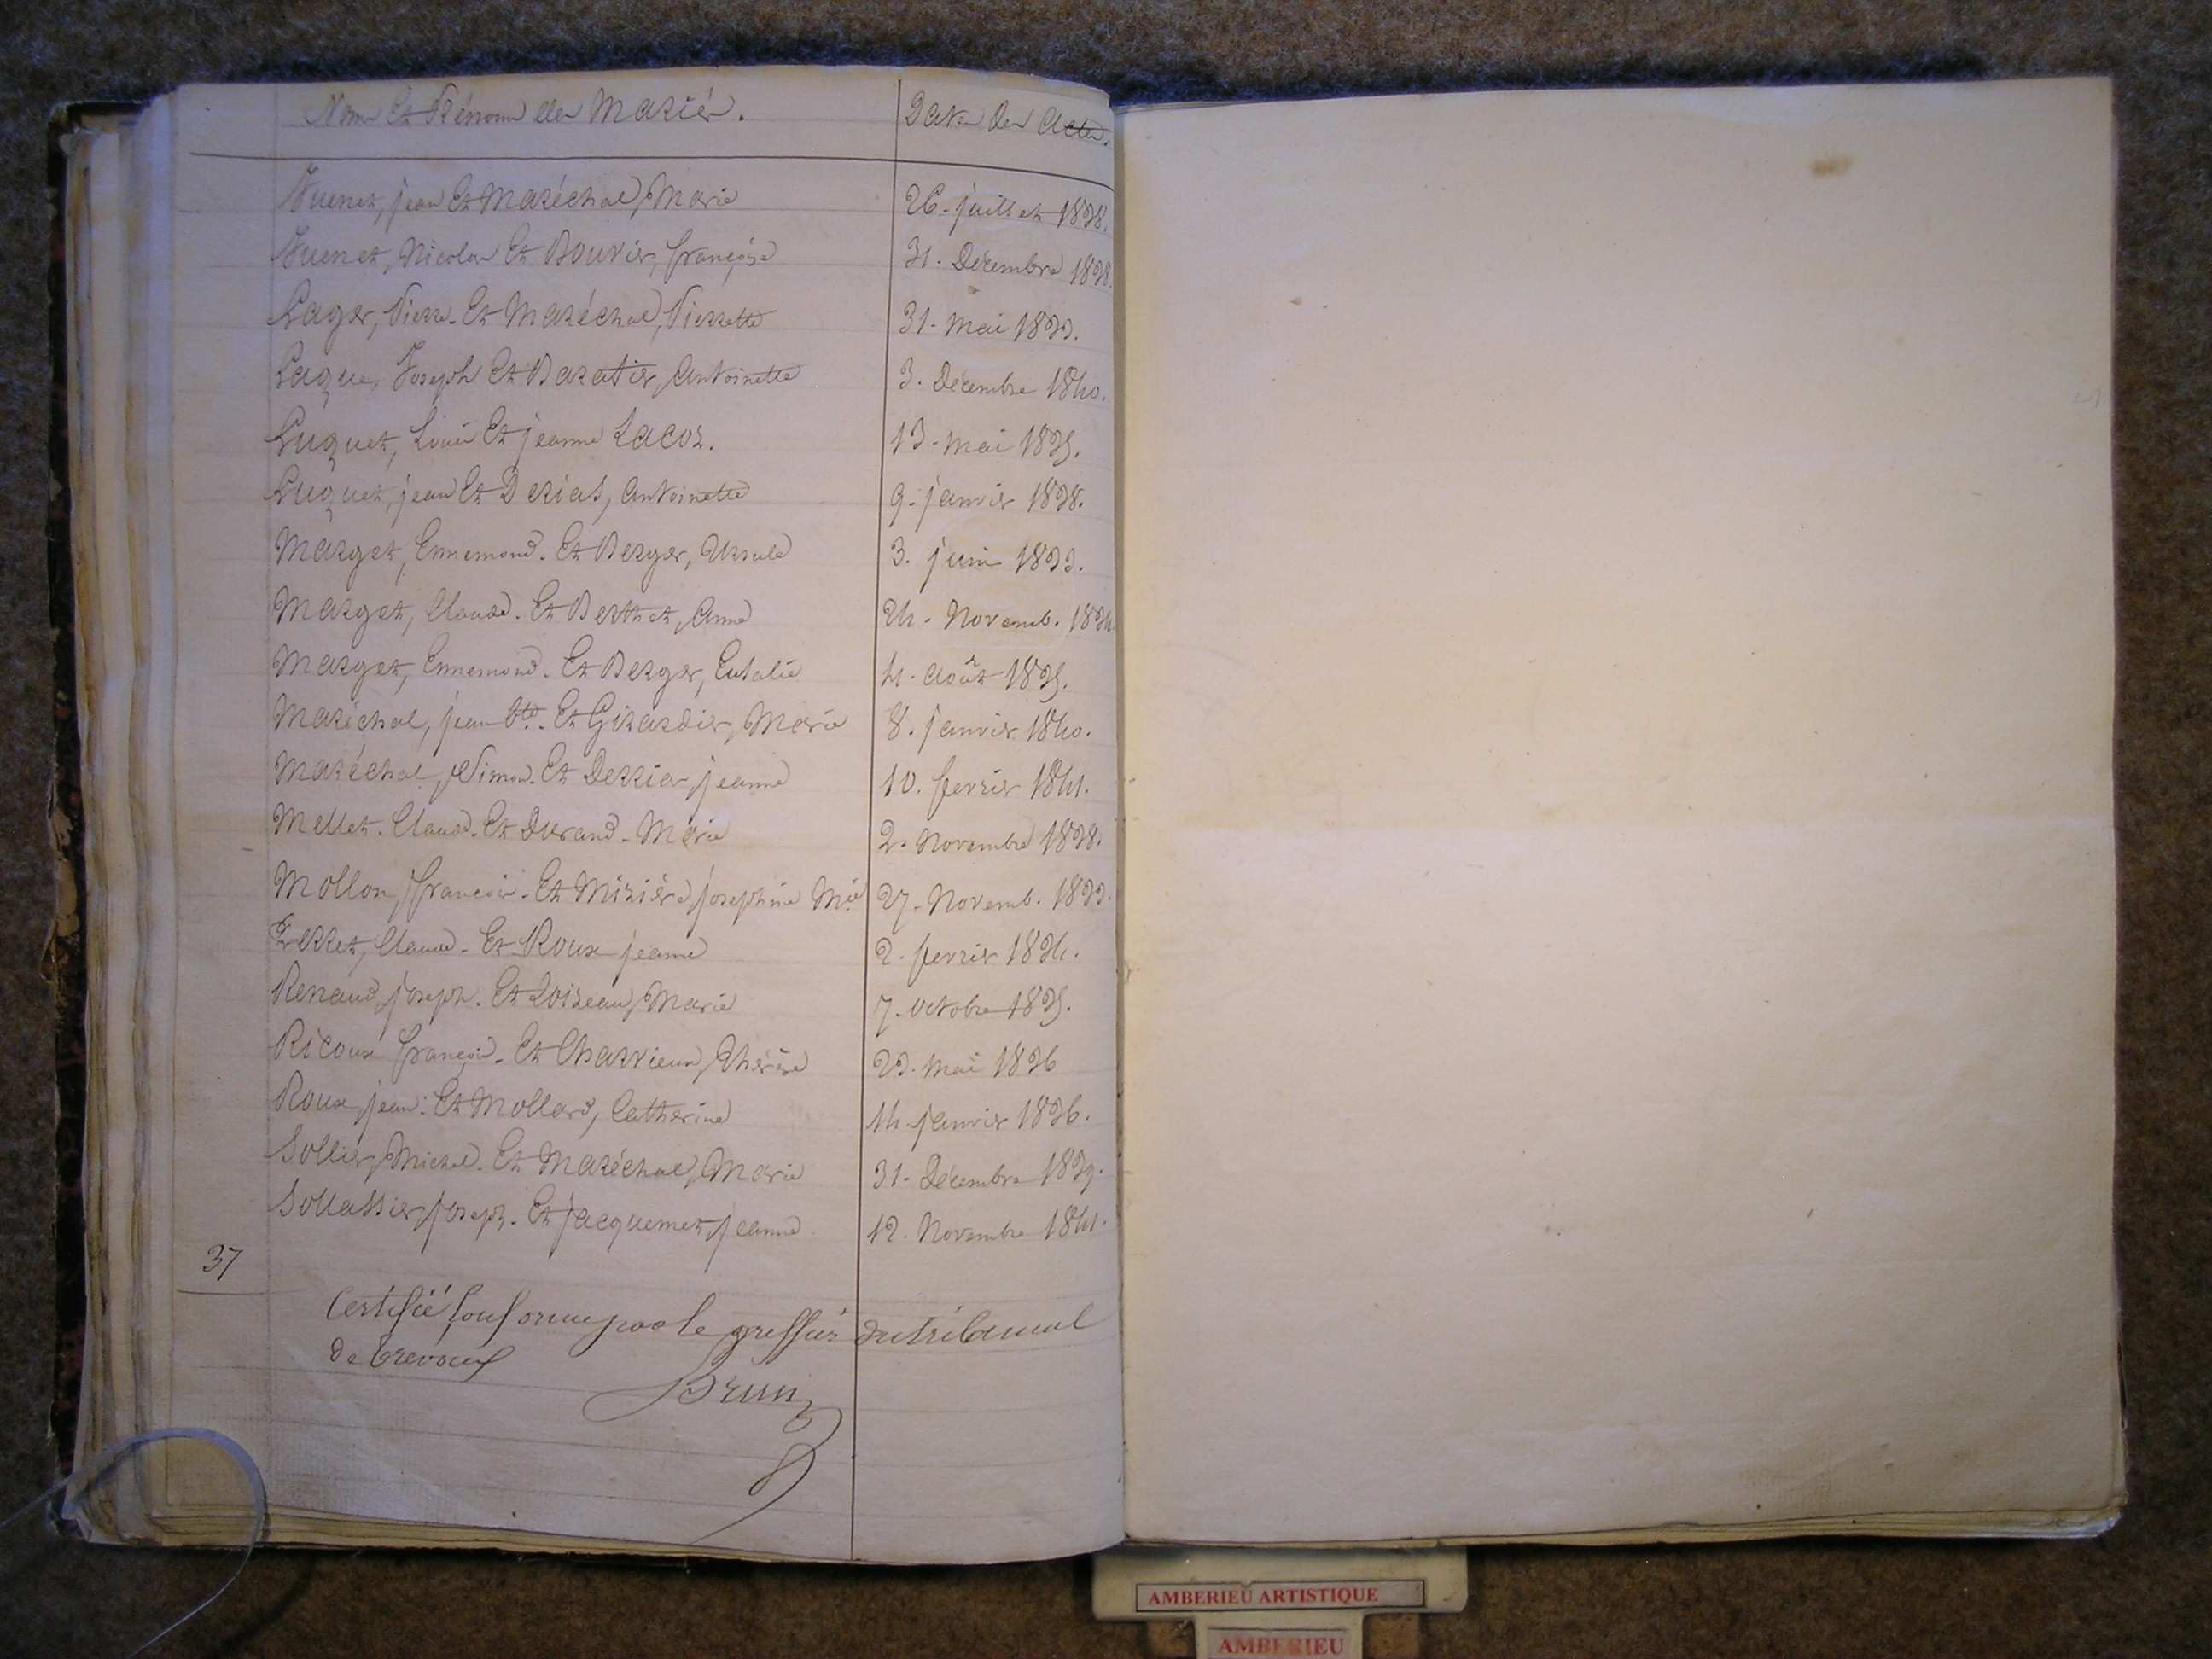 Noms Et Prénoms des Mariés. Date des Actes.
Juenet, jean Et Maréchal, Marie 26. juillet 1838.
Juenet, Nicolas Et Bouvier, françoise 31. Décembre 1838.
Lager, Pierre. Et Maréchal, Pierrette 31. mai 1833.
Laque, Joseph Et Baratier, Antoinette 3. Décembre 1840.
Luquet, Louis Et jeanne Lacor. 13. mai 1835.
Luquet, jean Et Derias, Antoinette 9. janvier 1838.
Marget, Ennemond. Et Berger, Ursule 3. juin 1833.
Marget, Claude. Et Berthet, Anne 24. Novemb. 1834
Marget, Ennemond. Et Berger, Eulalie 4. août 1835.
Maréchal, jean Bte. Et Girardier, Marie 8. janvier 1840.
Maréchal, Simon. Et Derrias, jeanne 10. fevrier 1841.
Mellet. Claude. Et Durand. Marie 2. Novembre 1838.
Mollon, françois. Et Mizière, josephine Mie 27. Novemb. 1833.
Perret, Claude. Et Roux jeanne 2. fevrier 1834.
Renaud, joseph. Et Loizeau, Marie 7. octobre 1835.
Ricoux françois. Et Charvieux, Thérèse 23. mai 1836
Roux, jean. Et Mollard, Catherine 14. janvier 1836.
Sollier, Michel. Et Maréchal, Marie 31. Décembre 1839.
Sollassier, joseph. Et jacquemet, jeanne 12. Novembre 1841.
37
Certifié Conforme par le greffier du tribunal
de Trevoux
Brun
AMBERIEU ARTISTIQUE
AMBERIEU